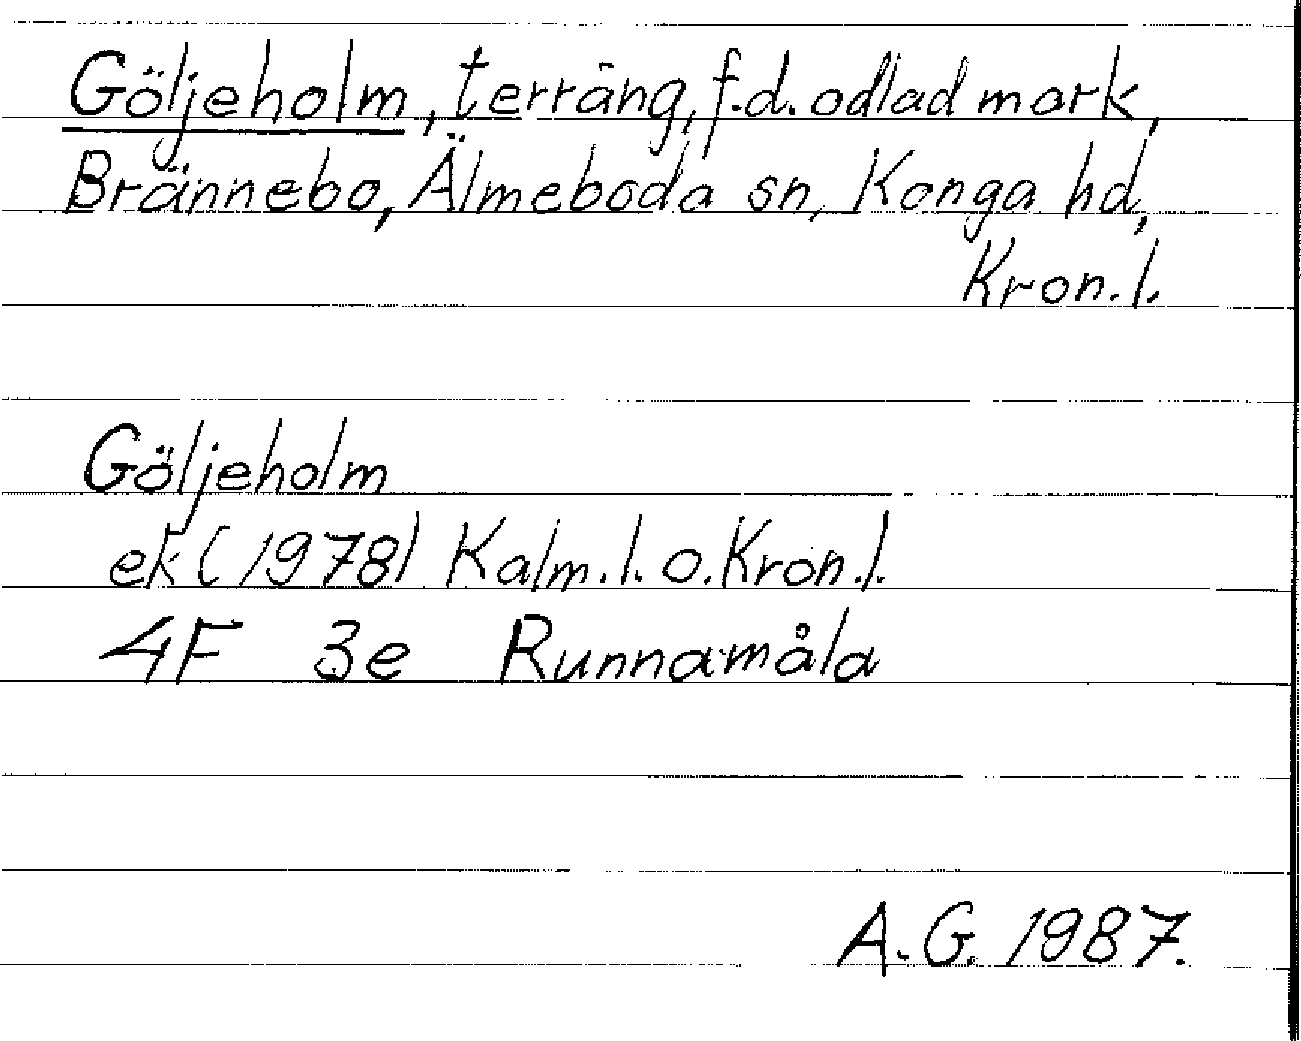 Göljeholm, terräng, f.d. odlad mark,
Brännebo, Älmeboda sn, Konga hd,
Kron. l.
Göljeholm
ek (1978) Kalm. l. o. Kron. l.
4F 3e Runnamåla
A.G. 1987.